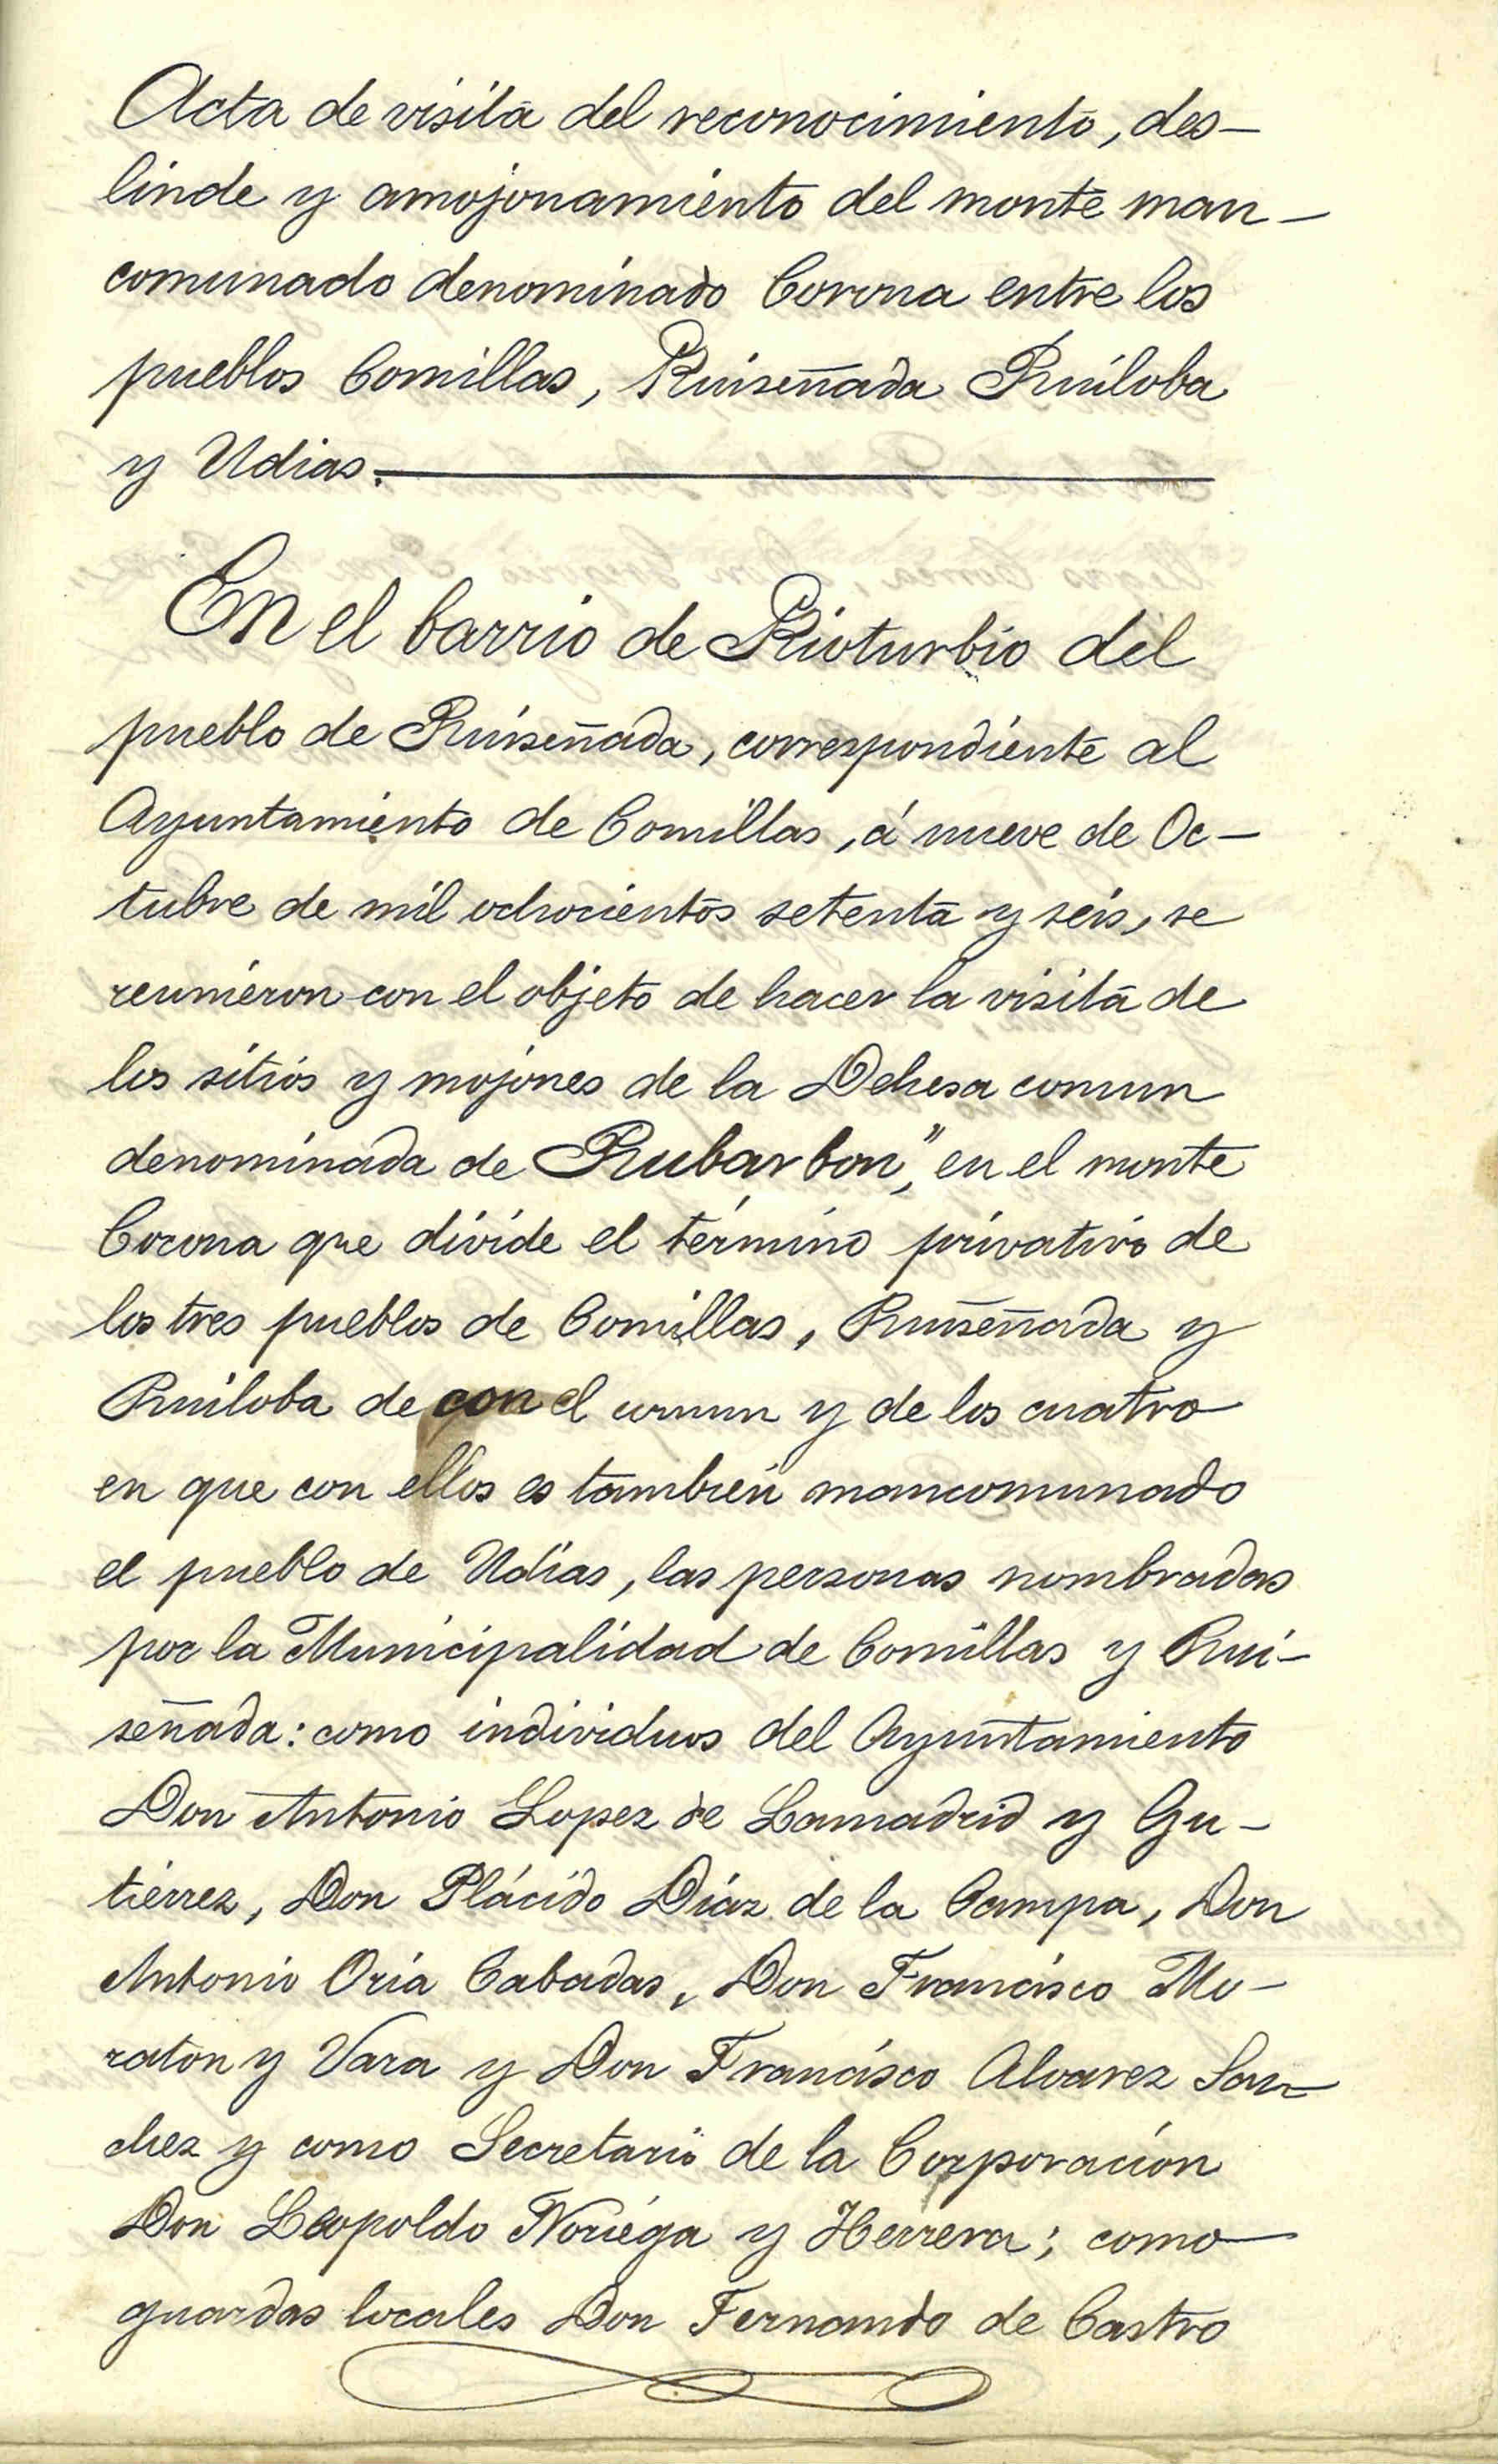 Acta de visita del reconocimiento, des-
linde y amojonamiento del monte man-
comunado denominado Corona entre los
pueblos Comillas, Ruiseñada Ruiloba
y Udias.
En el barrio de Rioturbio del
pueblo de Ruiseñada, correspondiente al
Ayuntamiento de Comillas, á nueve de Oc-
tubre de mil ochocientos setenta y seis, se
reunieron con el objeto de hacer la visita de
los sitios y mojones de la Dehesa comun
denominada de Rubarbon," en el monte
Corona que divide el término privativo de
los tres pueblos de Comillas, Ruiseñada y
Ruiloba de con el comun y de los cuatro
en que con ellos es tambien mancomunado
el pueblo de Udias, las personas nombradas
por la Municipalidad de Comillas y Rui-
señada: como individuos del Ayuntamiento
Don Antonio Lopez de Lamadrid y Gu-
tiérrez, Don Plácido Díaz de la Campa, Don
Antonio Oria Cabadas, Don Francisco Mo-
raton y Vara y Don Francisco Alvarez San-
chez y como Secretario de la Corporacion
Don Leopoldo Noriega y Herrera; como
guardas locales Don Fernando de Castro